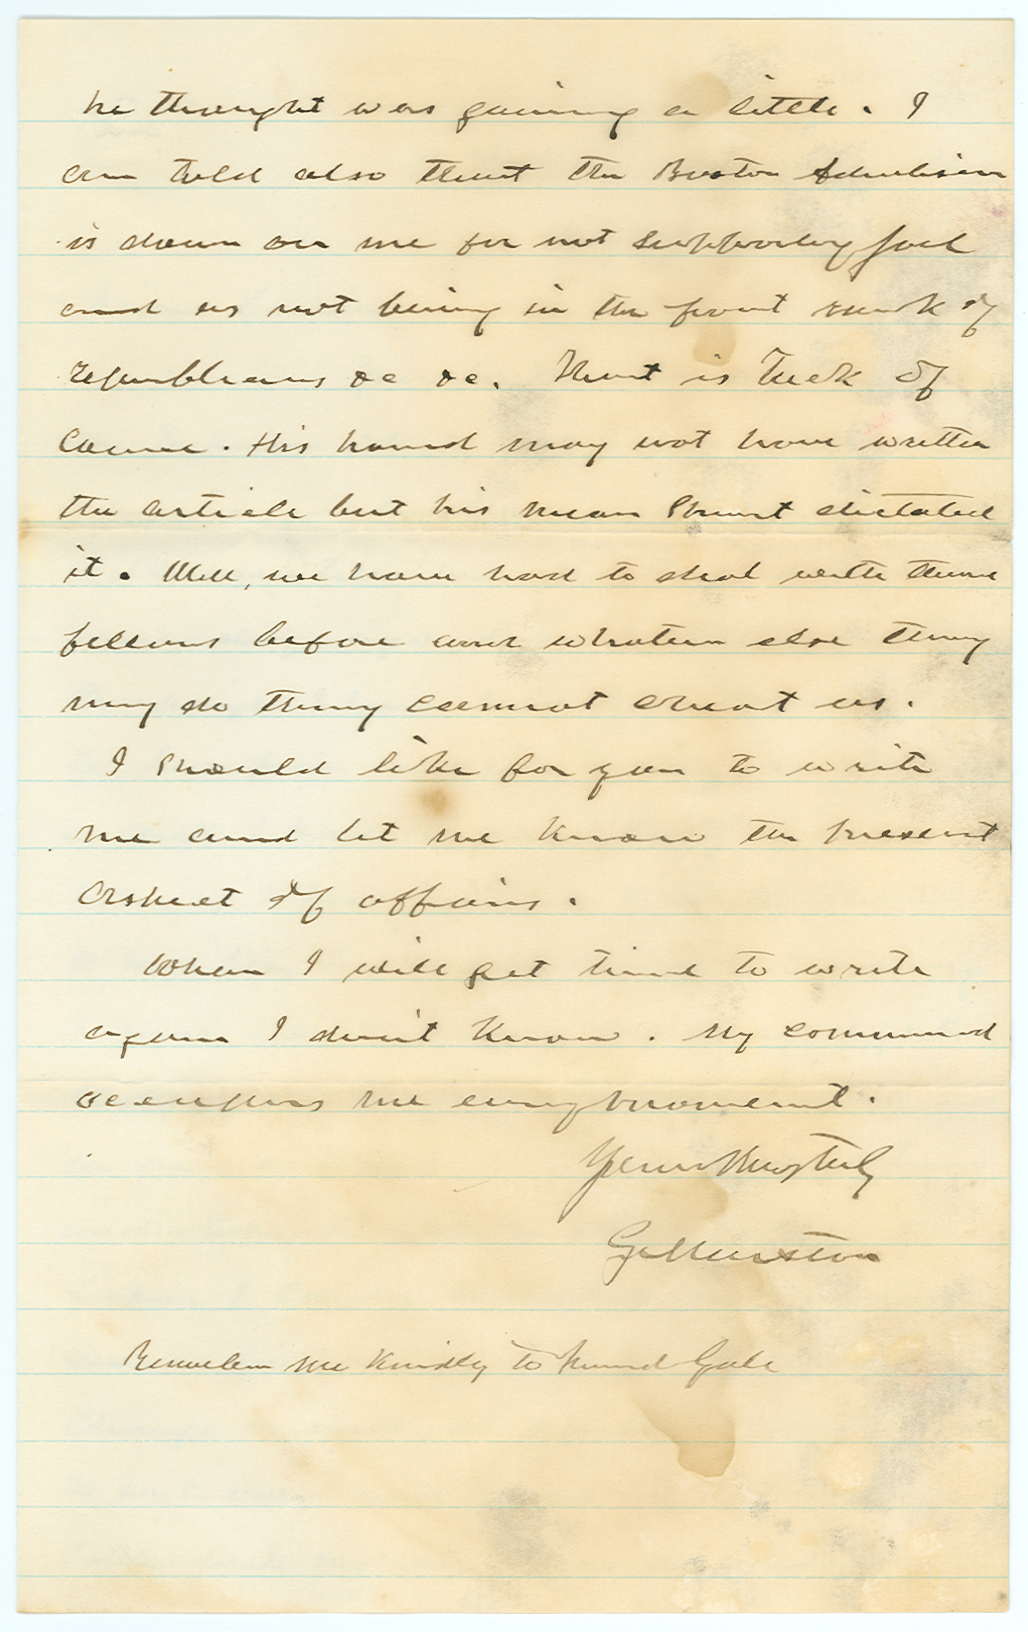 he thought was gaining a little. I
am told also that the Boston Advertiser
is down on me for not supporting
and as not being in the front rank of
republicans &c &c. That is Tuck of
Course. His hand may not have written
the article but his mean spirit dictated
it. Well, we have had to deal with these
fellows before and whatever else they
may do they cannot cheat us.
I should like for you to write
me and let me know the present
aspect of affairs.
When I will get time to write
again I don't know. My command
occupies me every moment.
Yours truly
G Marston
Remember me kindly to friend Gale